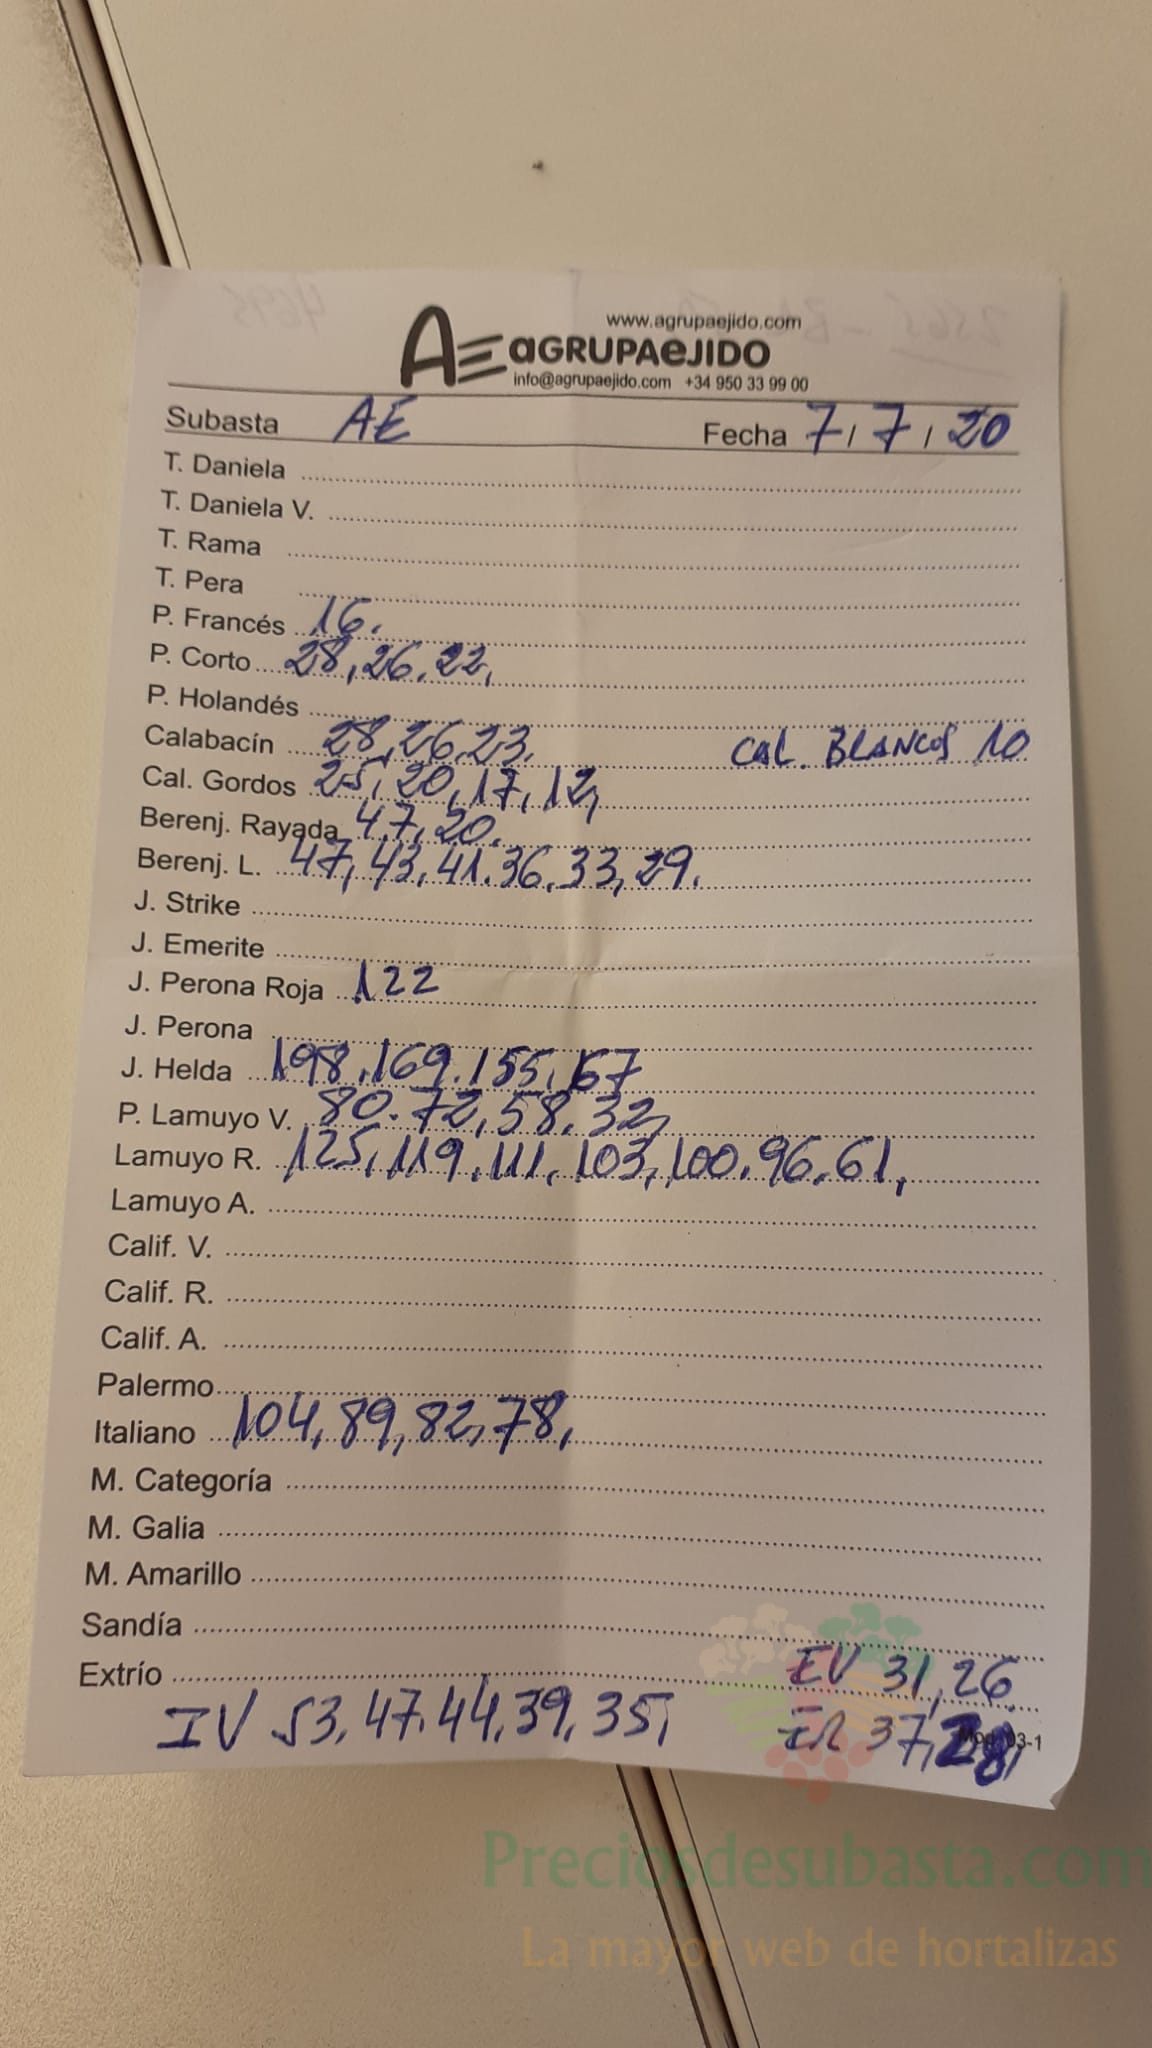 www.agrupaejido.com
AE aGRUPAeJIDO
info@agrupaejido.com +34 950 33 99 00
Subasta AE Fecha 7/7/20
T. Daniela
T. Daniela V.
T. Rama
T. Pera
P. Francés 16.
P. Corto 28,26.22,
P. Holandés
Calabacín 28,26,23. CAL. BLANCOS 10
Cal. Gordos 25,20,17,12,
Berenj. Rayada 47,20.
Berenj. L. 47,43,41.36.33,29.
J. Strike
J. Emerite
J. Perona Roja 122
J. Perona
J. Helda 198.169.155, 67
P. Lamuyo V. 80.72,58.32,
Lamuyo R. 125,119.111,103,100.96.61,
Lamuyo A.
Calif. V.
Calif. R.
Calif. A.
Palermo
Italiano 104,89,82,78,
M. Categoría
M. Galia
M. Amarillo
Sandía
Extrío EV 31,26
IV 53,47.44,39,35, 37,28,
Preciosdesubasta.com
La mayor web de hortalizas